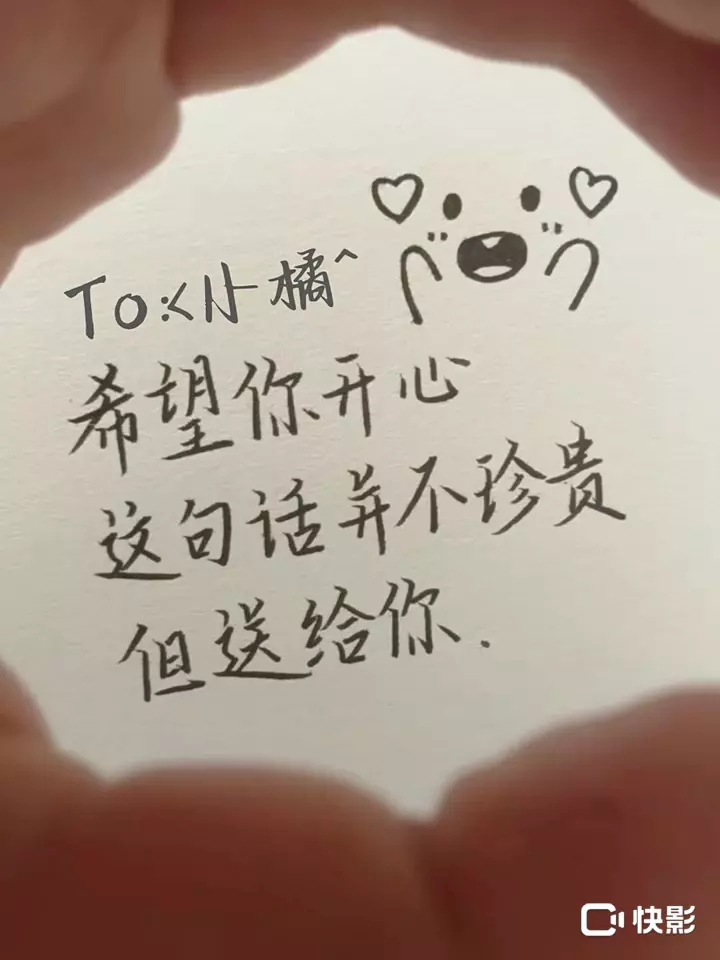 To:<小橘^
希望你开心
这句话并不珍贵
但送给你.
快影